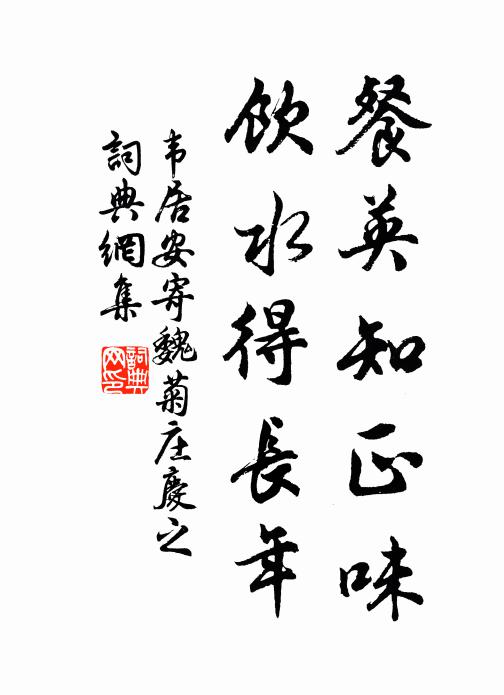 餐英知正味
飲水得長年
韦居安寄魏菊庄慶之
詞典網集
詞典
网印